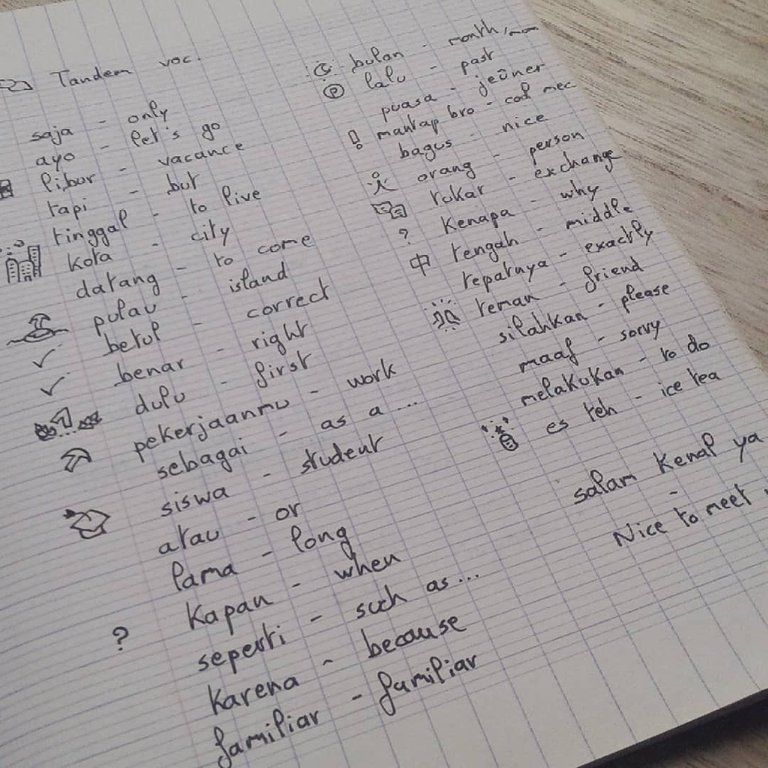 Tandem voc.
saja - only
ayo - let's go
libur - vacance
tapi - but
tinggal - to live
kota - city
datang - to come
pulau - island
betul - correct
benar - right
dulu - first
pekerjaanmu - work
sebagai - as a ...
siswa - student
atau - or
lama - long
? kapan - when
seperti - such as ...
karena - because
familiar - familiar
bulan - month,
lalu - past
puasa - jeûner
! mantap bro - cool mec
bagus - nice
orang - person
tukar - exchange
? kenapa - why
中 tengah - middle
tepatnya - exactly
teman - friend
silahkan - please
maaf - sorry
melakukan - to do
es teh - ice tea
salam kenal ya
-
Nice to meet